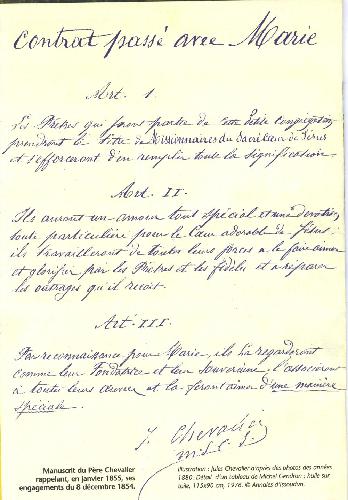 Contrat passé avec Marie
Art. I.
Les Prêtres qui feront partie de cette petite congrégation
prendront le titre de Missionnaires du Sacré Cœur de Jésus
et s'efforceront d'en remplir toute la signification.
Art. II.
Ils auront un amour tout spécial et une dévotion
toute particulière pour le Cœur adorable de Jésus:
ils travailleront de toutes leurs forces à le faire aimer
et glorifier par les Prêtres et les fidèles et à réparer
les outrages qu'il reçoit.
Art. III.
Par reconnaissance pour Marie, ils la regarderont
comme leur Fondatrice et leur Souveraine, l'associeront
à toutes leurs œuvres et la feront aimer d'une manière
spéciale.
J. Chevalier
Manuscrit du Père Chevalier
rappelant, en janvier 1855, ses
engagements du 8 décembre 1854.
Illustration : Jules Chevalier d'après des photos des années
1880. Détail d'un tableau de Michel Gendron ; huile sur
toile, 115x90 cm, 1978. © Annales d'Issoudun.